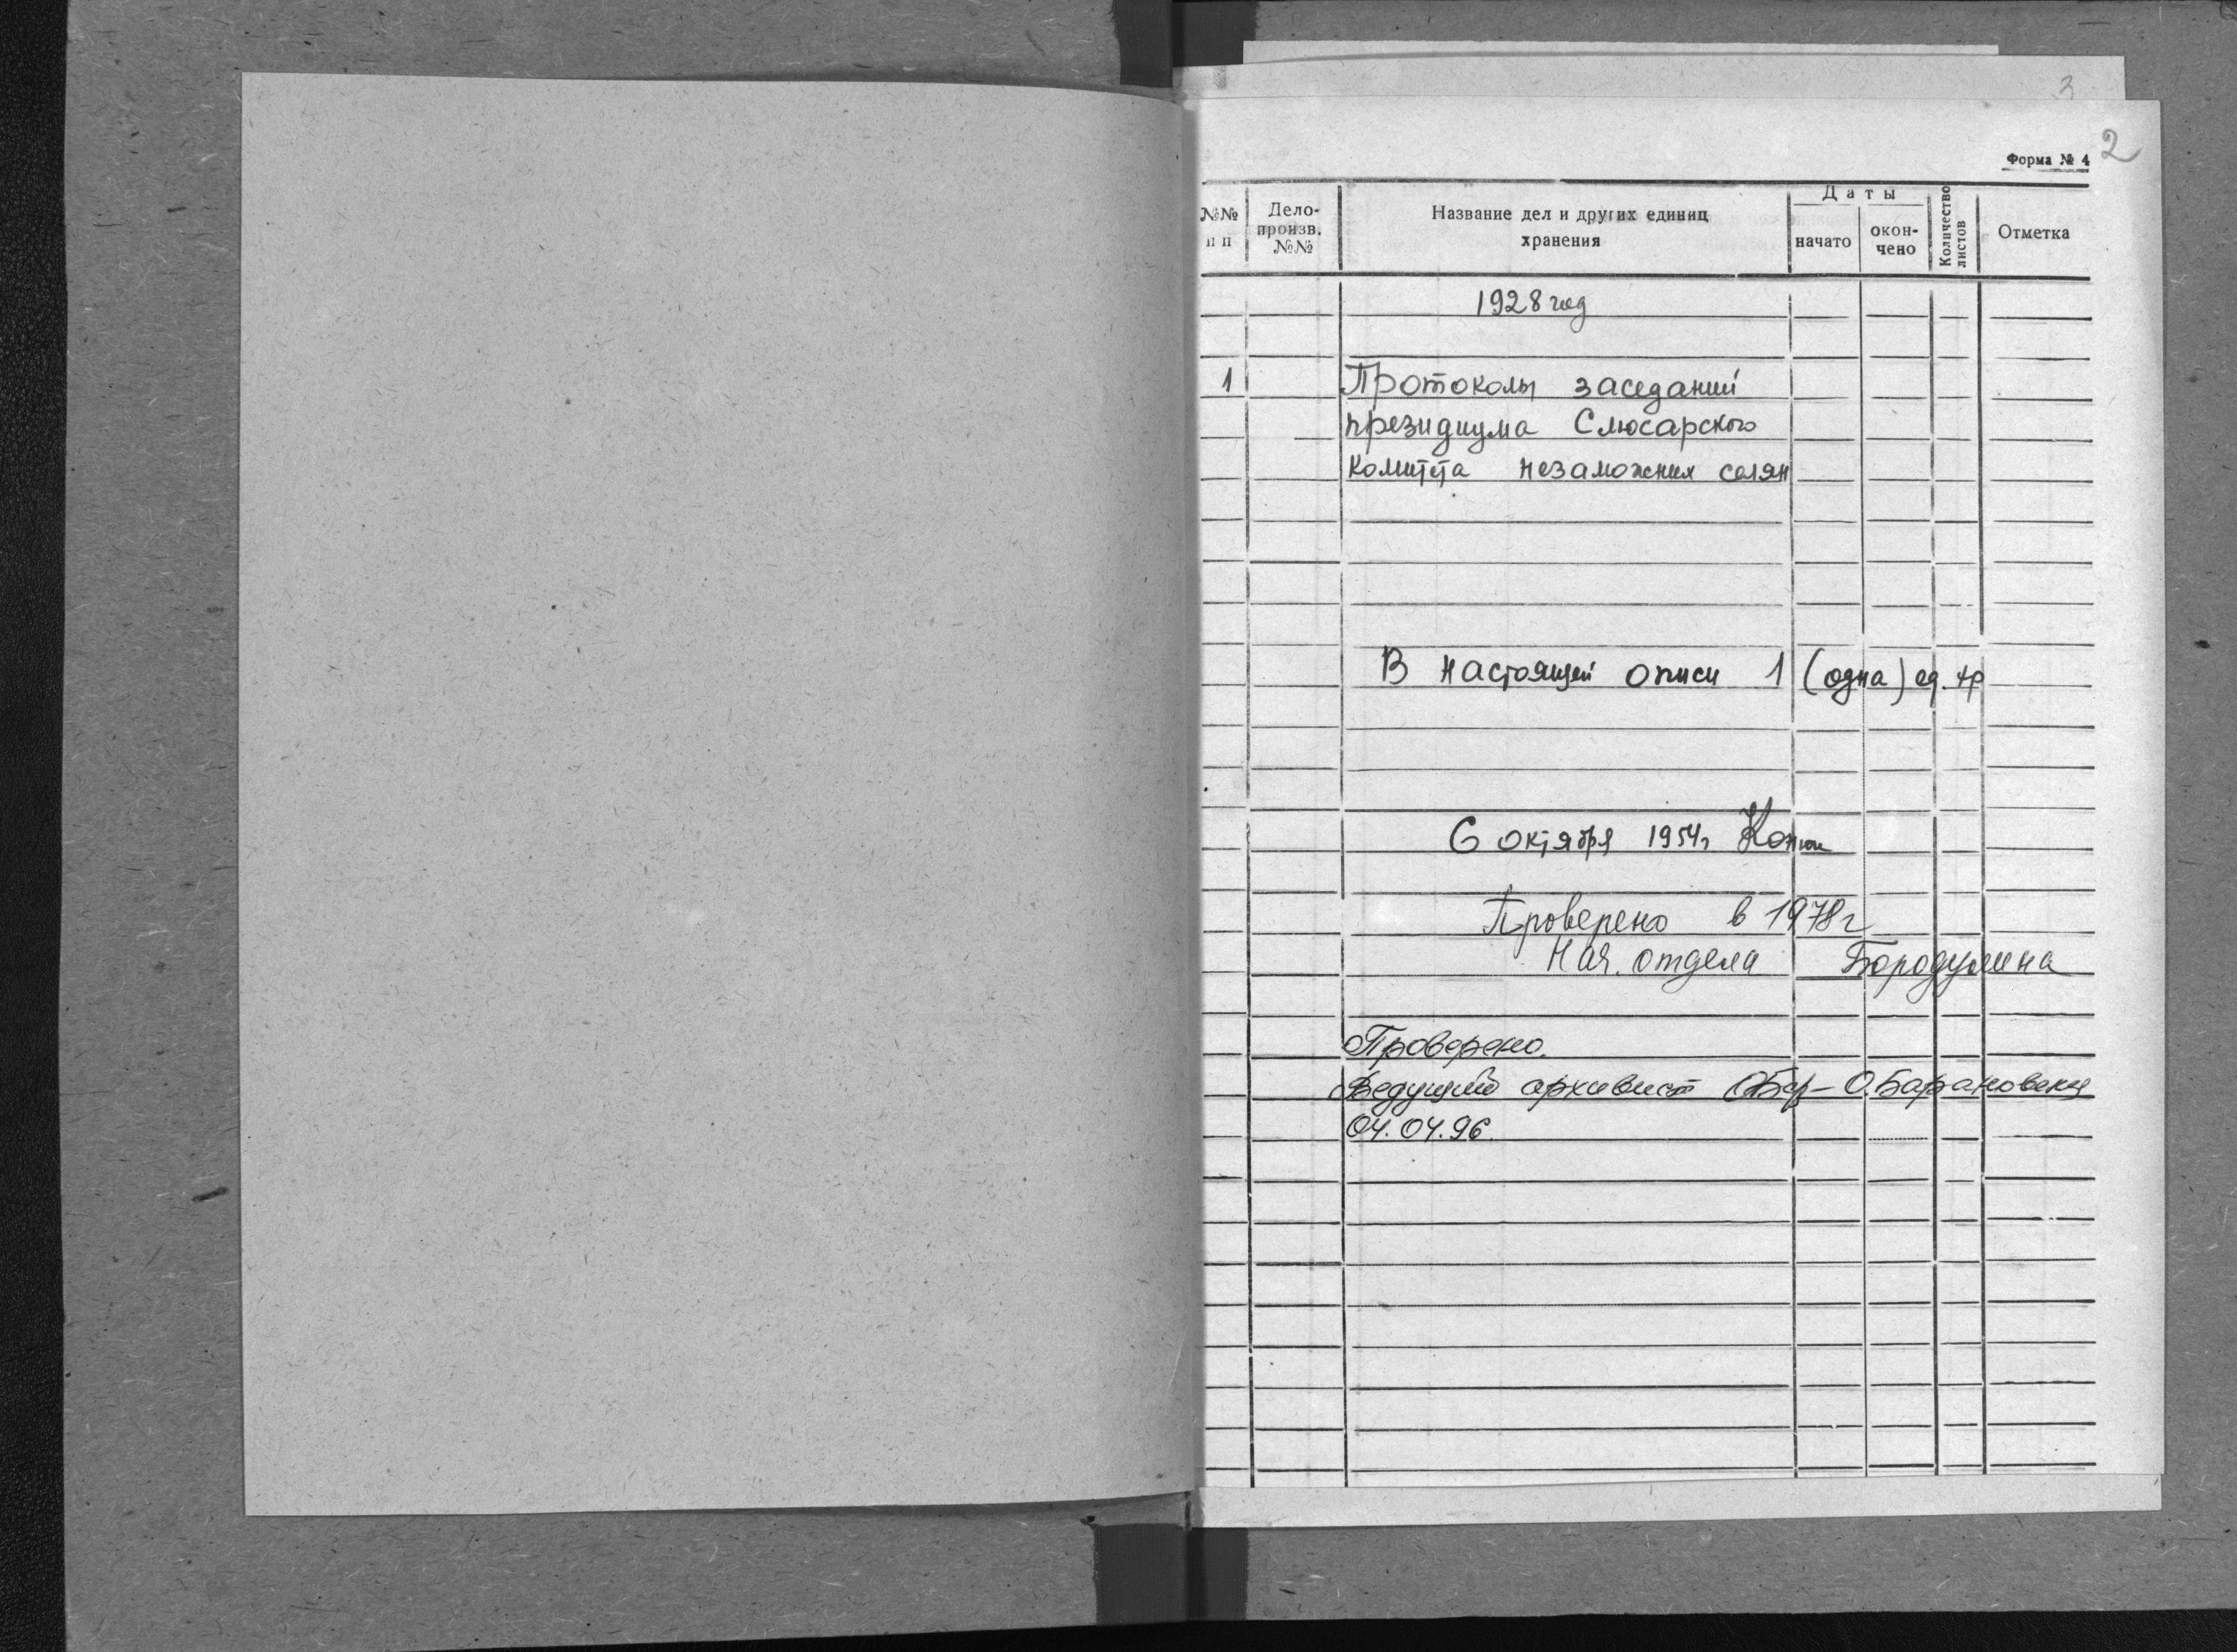 3
2
Форма № 4
№№ п п
Дело-произв. №№
Название дел и других единиц хранения
Даты
начато
окон-чено
Количество листов
Отметка
1928 год
1 Протоколы заседаний
президиума Слюсарского
комитета незаможних селян
В настоящей описи 1 (одна) ед. хр
6 октября 1954г
Проверено в 1978г
Нач. отдела Бородулина
Проверено.
Ведущий архивист О.Барановская
04.04.96